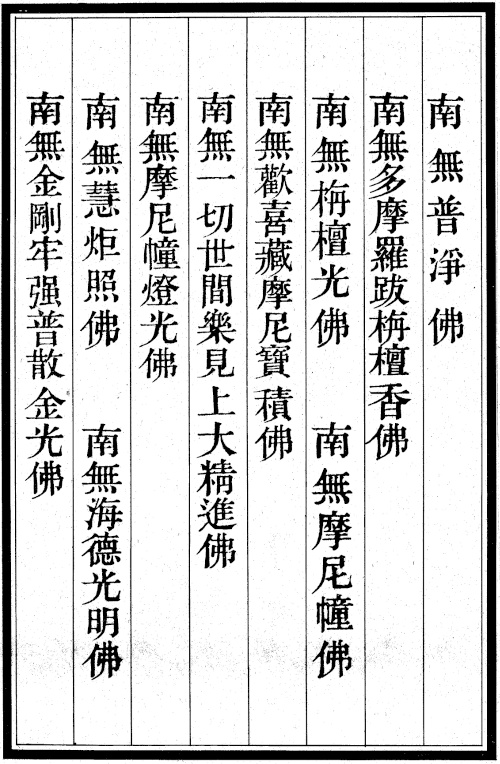 南無普淨佛
南無多摩羅跋栴檀香佛
南無栴檀光佛　南無摩尼幢佛
南無歡喜藏摩尼寶積佛
南無一切世間樂見上大精進佛
南無摩尼幢燈光佛
南無慧炬照佛　南無海德光明佛
南無金剛牢强普散金光佛